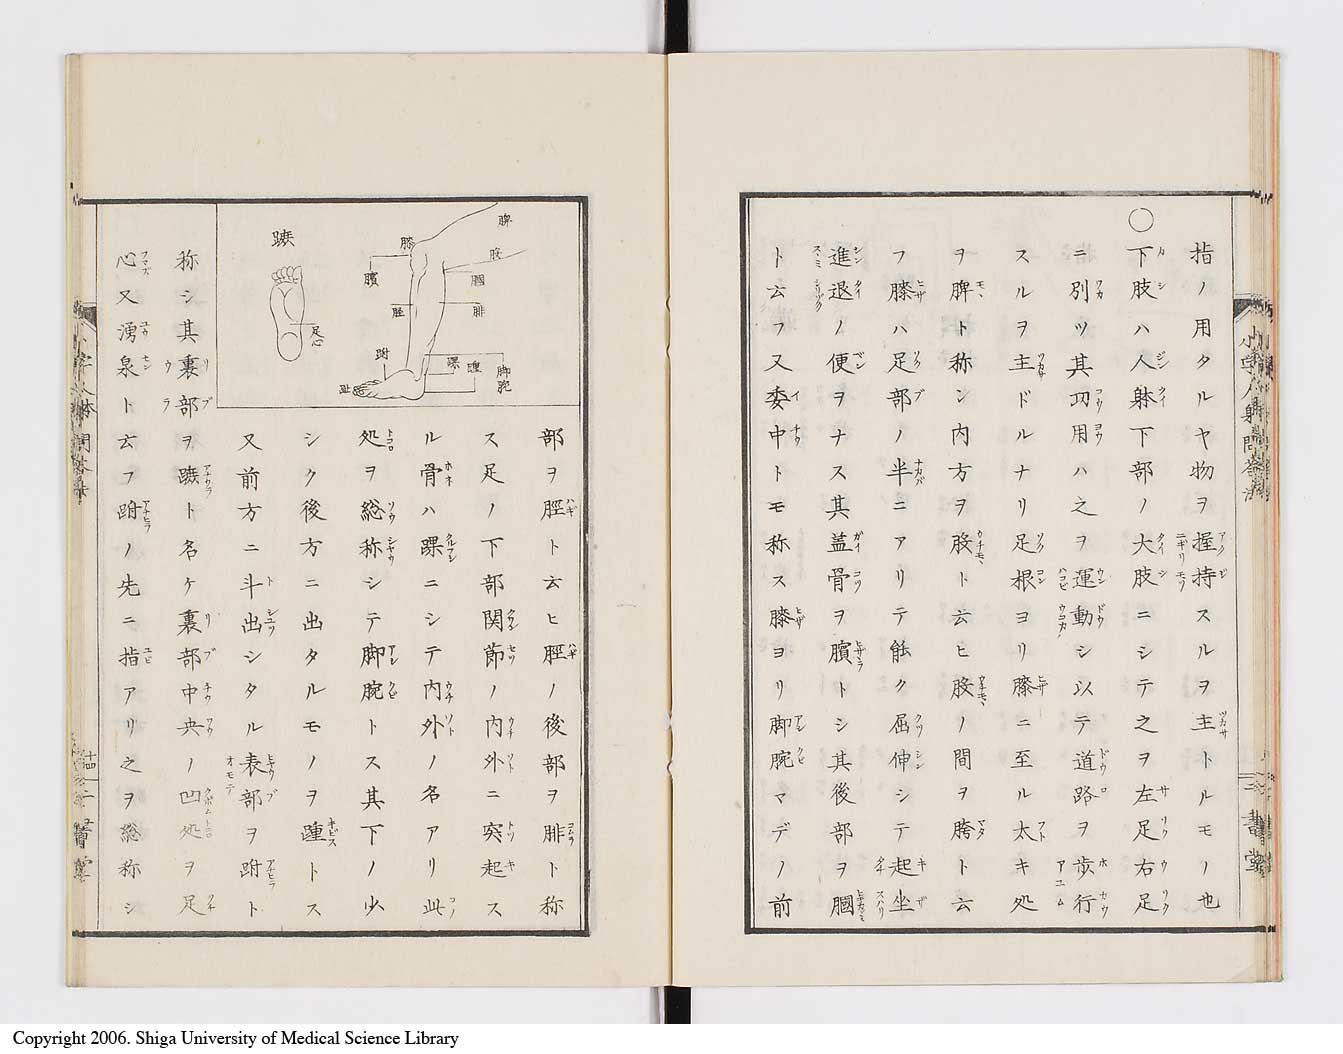 指ノ用タルヤ物ヲ握持スルヲ主トルモノ也
〇下肢ハ人躰下部ノ大肢ニシテ之ヲ左足右足
ニ別ツ其功用ハ之ヲ運動シ以テ道路ヲ歩行
スルヲ主ドルナリ足根ヨリ膝ニ至ル太キ処
ヲ脾ト称シ内方ヲ股ト云ヒ股ノ間ヲ胯ト云
フ膝ハ足部ノ半ニアリテ能ク屈伸シテ起坐
進退ノ便ヲナス其蓋骨ヲ臏トシ其後部ヲ膕
ト云フ又委中トモ称ス膝ヨリ脚腕マデノ前
部ヲ脛ト云ヒ脛ノ後部ヲ腓ト称
ス足ノ下部関節ノ内外ニ突起ス
ル骨ハ踝ニシテ内外ノ名アリ此
処ヲ総称シテ脚腕トス其下ノ少
シク後方ニ出タルモノヲ踵トス
又前方ニ斗出シタル表部ヲ跗ト
称シ其裏部ヲ蹠ト名ケ裏部中央ノ凹処ヲ足
心又湧泉ト云ヲ跗ノ先ニ指アリ之ヲ総称シ
脾
股
膝
膕
臏
脛
腓
跗
踝
脚腕
趾
蹠
足心
小学人身問答
二書堂
十四
Copyright 2006. Shiga University of Medical Science Library